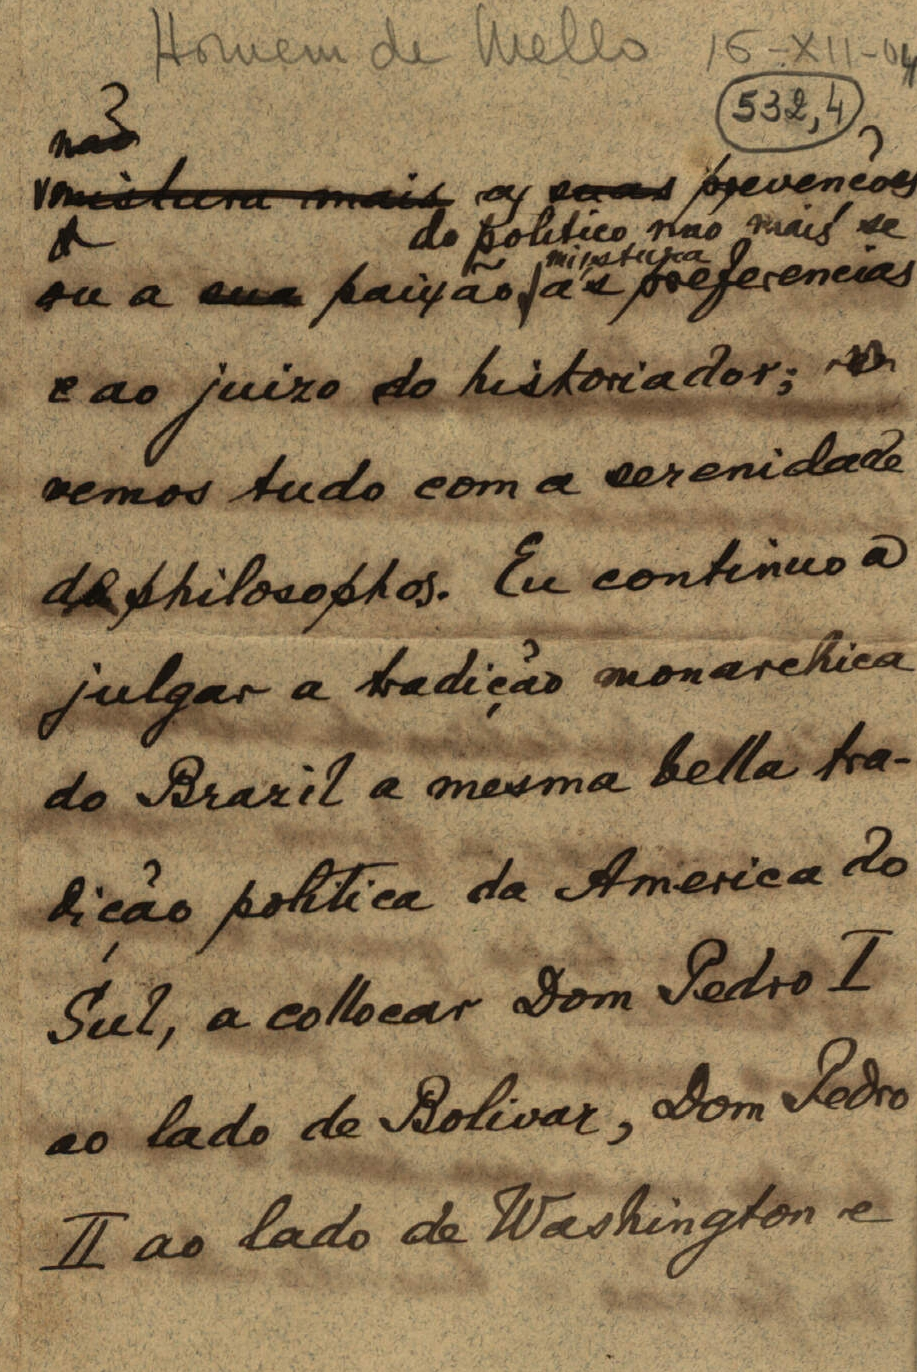 Homem de Mello 15-XII-04
532,4
não
mistura mais as suas prevenções
do politico não mais se
ou a sua paixão, mistura
ás preferencias
e ao juizo do historiador;
vemos tudo com a serenidade
de philosophos. Eu continuo a
julgar a tradição monarchica
do Brazil a mesma bella tra-
dição politica da America do
Sul, a collocar Dom Pedro I
ao lado de Bolivar, Dom Pedro
II ao lado de Washington e